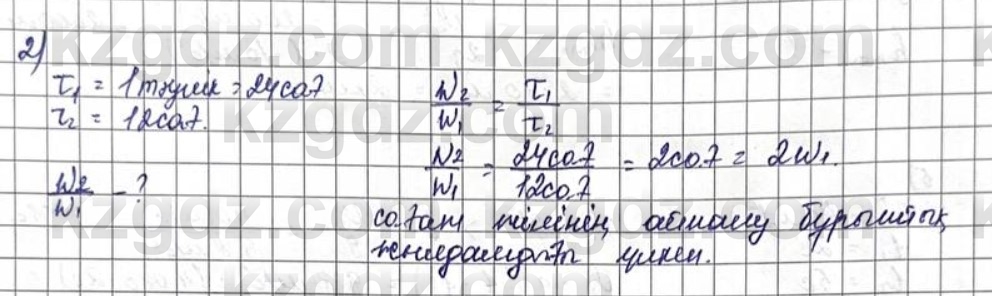 2)
τ₁ = 1 тәулік = 24 сағ
τ₂ = 12 сағ.
W₂/W₁ - ?
W₂/W₁ = τ₁/τ₂
W₂/W₁ = 24 сағ/12 сағ = 2 сағ = 2W₁.
сағат тілінің айналу бұрыштық
жылдамдығы үлкен.
kzgdz.com kzgdz.com kzgdz.com